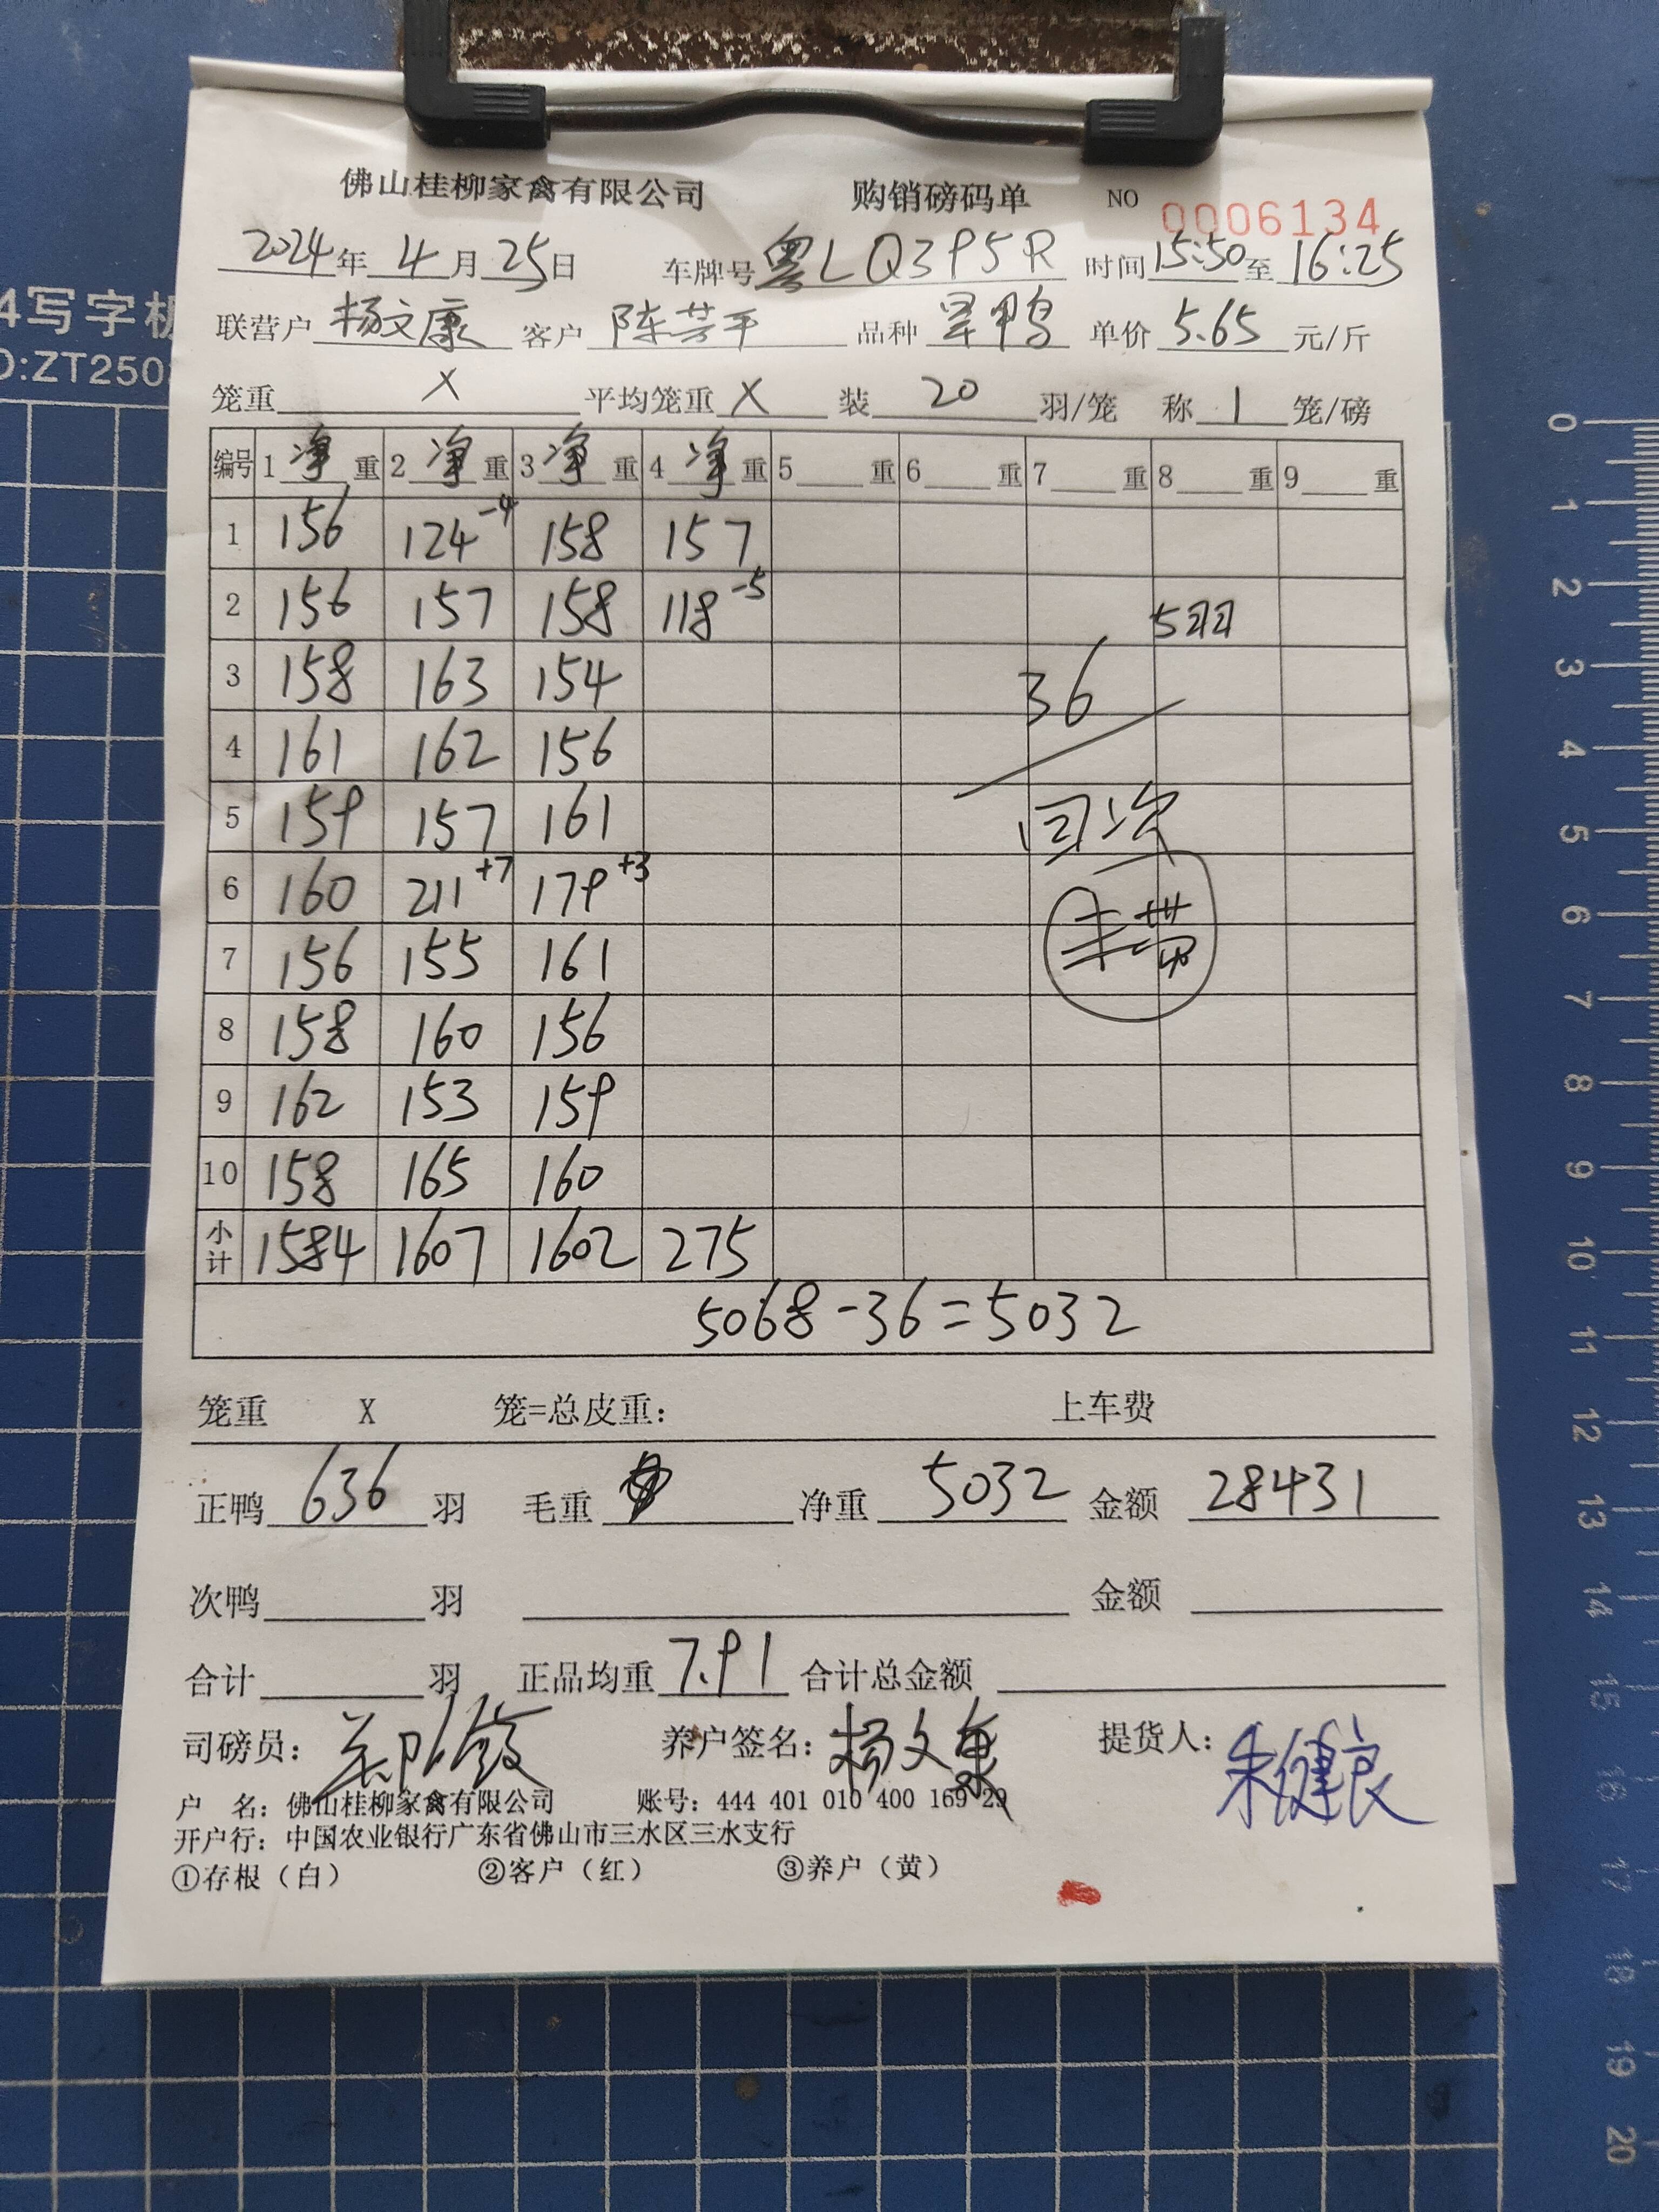 佛山桂柳家禽有限公司 购销磅码单 NO 0006134
2024年4月25日 车牌号粤LQ395R 时间15:50至16:25
联营户 杨文康 客户 陈芸平 品种 旱鸭 单价 5.65 元/斤
笼重 X 平均笼重 X 装 20 羽/笼 称 1 笼/磅
编号 1净重 2净重 3净重 4净重 5重 6重 7重 8重 9重
1 156 124-4 158 157
2 156 157 158 118-5 5羽
3 158 163 154 36
4 161 162 156
5 159 157 161 回次
6 160 211+7 179+3
7 156 155 161
8 158 160 156
9 162 153 159
10 158 165 160
小计 1584 1607 1602 275
5068-36=5032
笼重 X 笼=总皮重: 上车费
正鸭 636 羽 毛重 净重 5032 金额 28431
次鸭 羽 金额
合计 羽 正品均重 7.91 合计总金额
司磅员: 养户签名: 杨文康 提货人: 朱健良
户 名: 佛山桂柳家禽有限公司 账号: 444 401 010 400 169 29
开户行: 中国农业银行广东省佛山市三水区三水支行
①存根(白) ②客户(红) ③养户(黄)
4写字板
D:ZT250
0 1 2 3 4 5 6 7 8 9 10 11 12 13 14 15 16 17 18 19 20